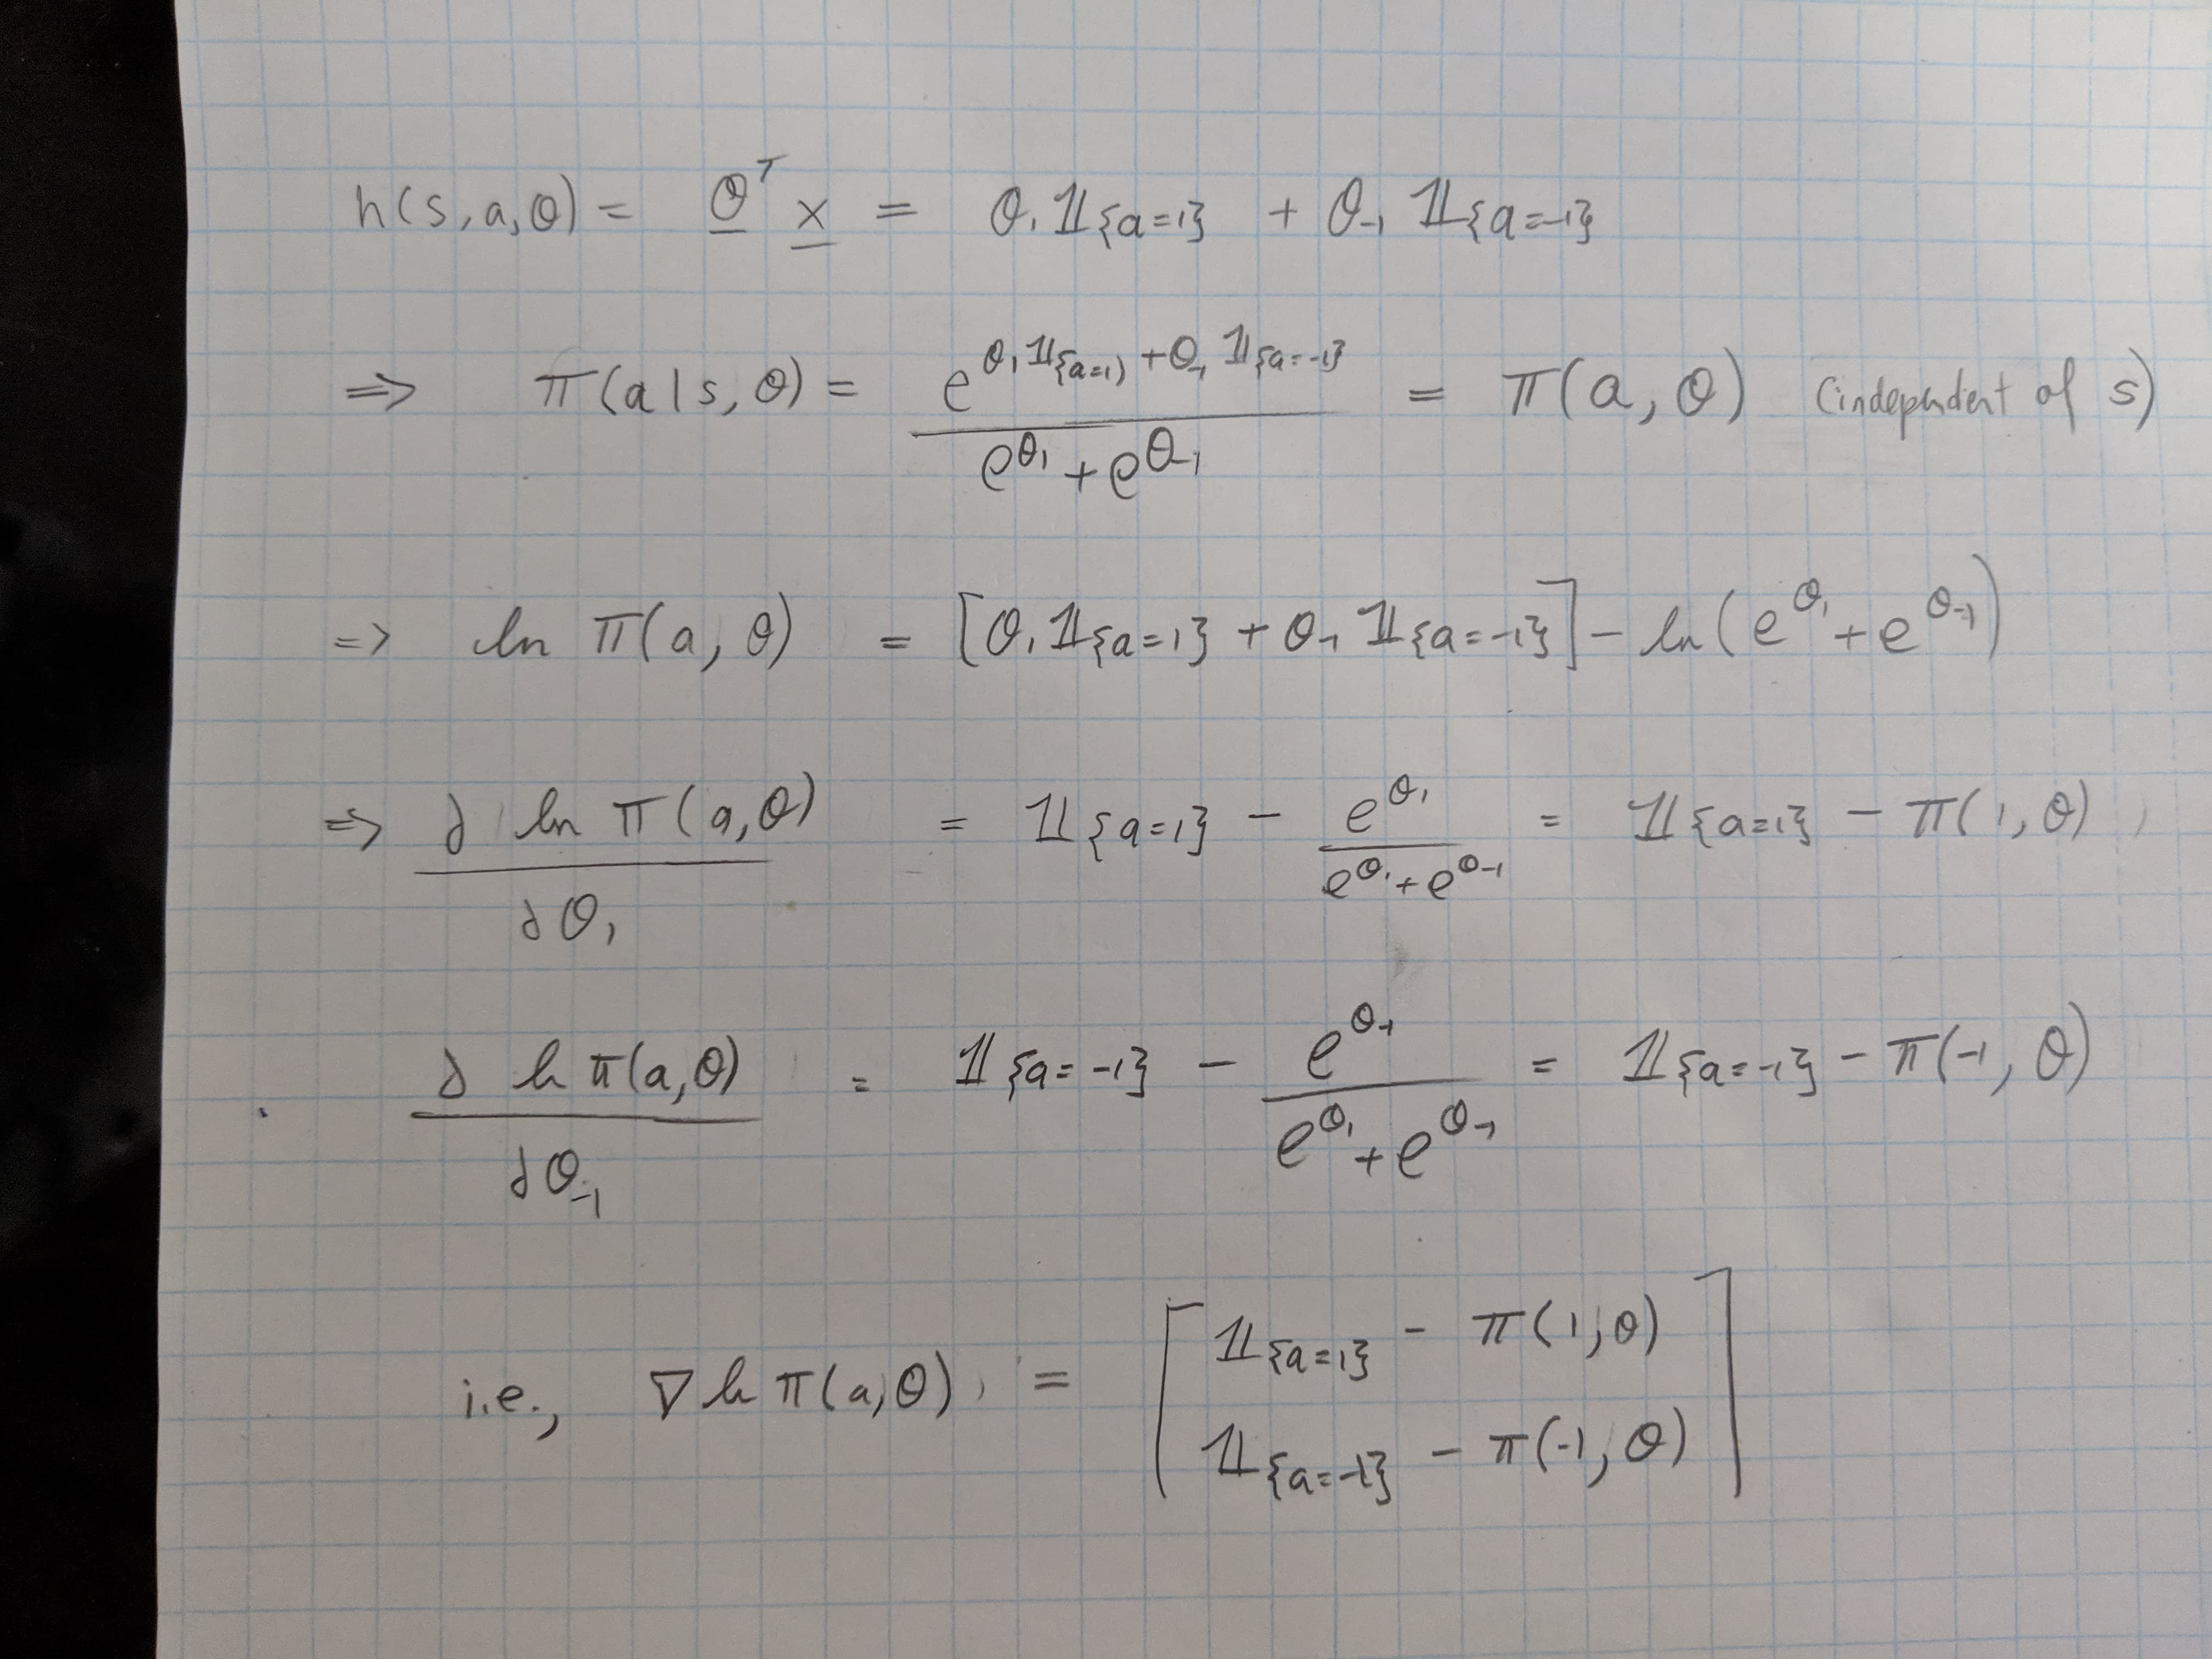 h(s,a,θ) = θᵀ x = θ₁ 𝟙{a=1} + θ₋₁ 𝟙{a=-1}
⇒ π(a|s,θ) = e^(θ₁ 𝟙{a=1) + θ₋₁ 𝟙{a=-1}) / (e^θ₁ + e^θ₋₁) = π(a,θ) (independent of s)
⇒ ln π(a,θ) = [θ₁ 𝟙{a=1} + θ₋₁ 𝟙{a=-1}] - ln(e^θ₁ + e^θ₋₁)
⇒ ∂ ln π(a,θ) / ∂θ₁ = 𝟙{a=1} - e^θ₁ / (e^θ₁ + e^θ₋₁) = 𝟙{a=1} - π(1,θ)
∂ ln π(a,θ) / ∂θ₋₁ = 𝟙{a=-1} - e^θ₋₁ / (e^θ₁ + e^θ₋₁) = 𝟙{a=-1} - π(-1,θ)
i.e., ∇ ln π(a,θ) = [ 𝟙{a=1} - π(1,θ)
𝟙{a=-1} - π(-1,θ) ]